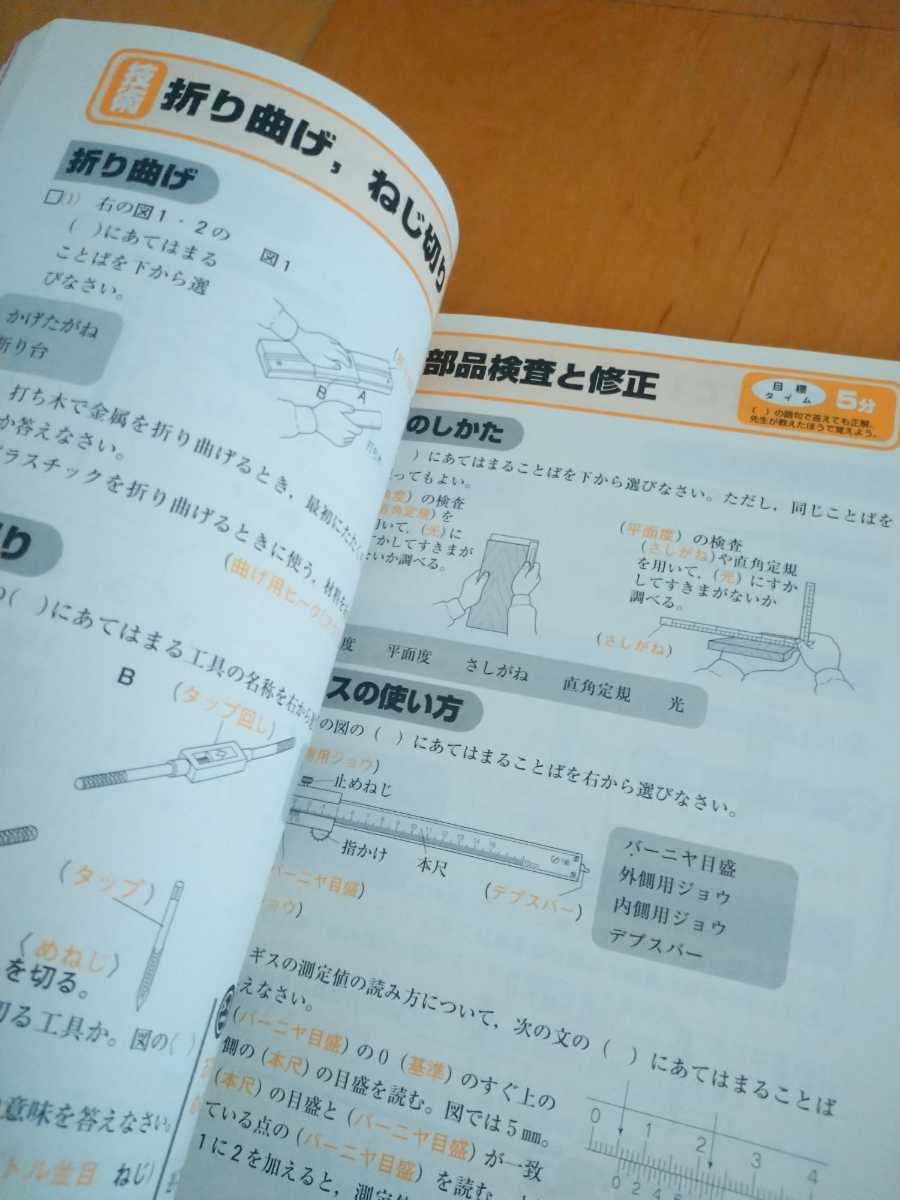 技術
折り曲げ，ねじ切り
折り曲げ
右の図1・2の
（ ）にあてはまる
ことばを下から選
びなさい。
図1
かげたがね
折り台
B A
打ち木で金属を折り曲げるとき，最初にたたく
か答えなさい。
プラスチックを折り曲げるときに使う，材料を
（曲げ用ヒータ
り
の（ ）にあてはまる工具の名称を右から
B
（タップ回し）
（タップ）
〈めねじ〉
を切る。
切る工具か。図の（ ）
意味を答えなさい。
トル並目 ねじ）
部品検査と修正
目標
タイム
5分
（ ）の語句で答えても正解。
先生が教えたほうで覚えよう。
のしかた
）にあてはまることばを下から選びなさい。ただし，同じことばを
ってもよい。
度）の検査
角定規）を
用いて，（光）に
かしてすきまが
いか調べる。
（平面度）の検査
（さしがね）や直角定規
を用いて，（光）にすか
してすきまがないか
調べる。
（さしがね）
度 平面度 さしがね 直角定規 光
スの使い方
の図の（ ）にあてはまることばを右から選びなさい。
側用ジョウ）
止めねじ
指かけ
本尺
バーニヤ目盛）
ョウ）
（デプスバー）
バーニヤ目盛
外側用ジョウ
内側用ジョウ
デプスバー
ギスの測定値の読み方について，次の文の（ ）にあてはまることば
えなさい。
（バーニヤ目盛）の0（基準）のすぐ上の
側の（本尺）の目盛を読む。図では5mm。
（本尺）の目盛と（バーニヤ目盛）が一致
ている点の（バーニヤ目盛）を読む。
1に2を加えると，測定
0 1 2 3 4
0 2 4